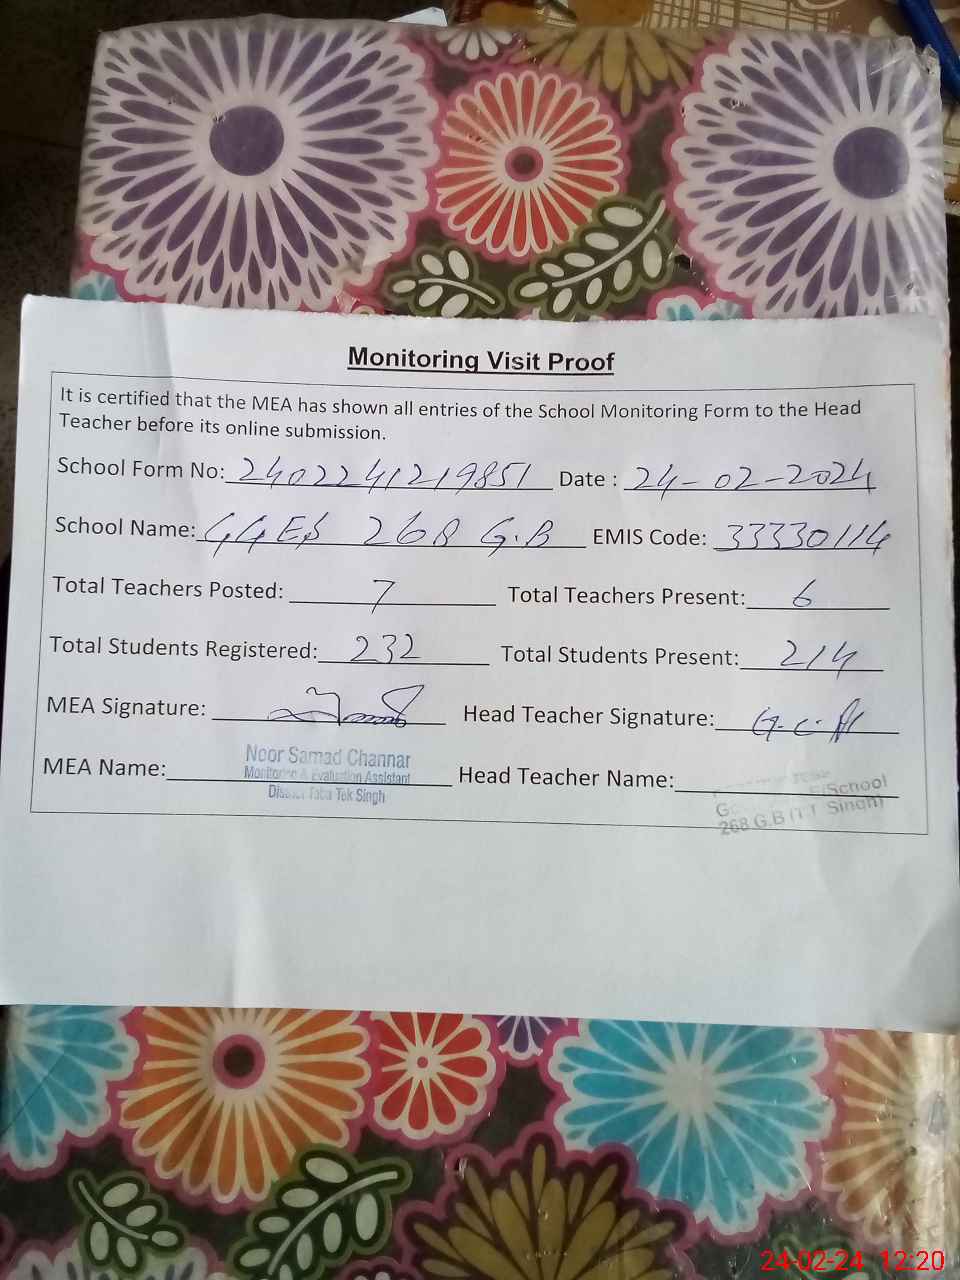 Monitoring Visit Proof
It is certified that the MEA has shown all entries of the School Monitoring Form to the Head
Teacher before its online submission.
School Form No: 2402241219851 Date : 24-02-2024
School Name: GGES 268 G.B EMIS Code: 33330114
Total Teachers Posted: 7 Total Teachers Present: 6
Total Students Registered: 232 Total Students Present: 214
MEA Signature: Head Teacher Signature:
MEA Name: Noor Samad Channar Head Teacher Name:
Monitoring & Evaluation Assistant
District Toba Tek Singh
E/School
268 G.B (T.T Singh)
24-02-24 12:20